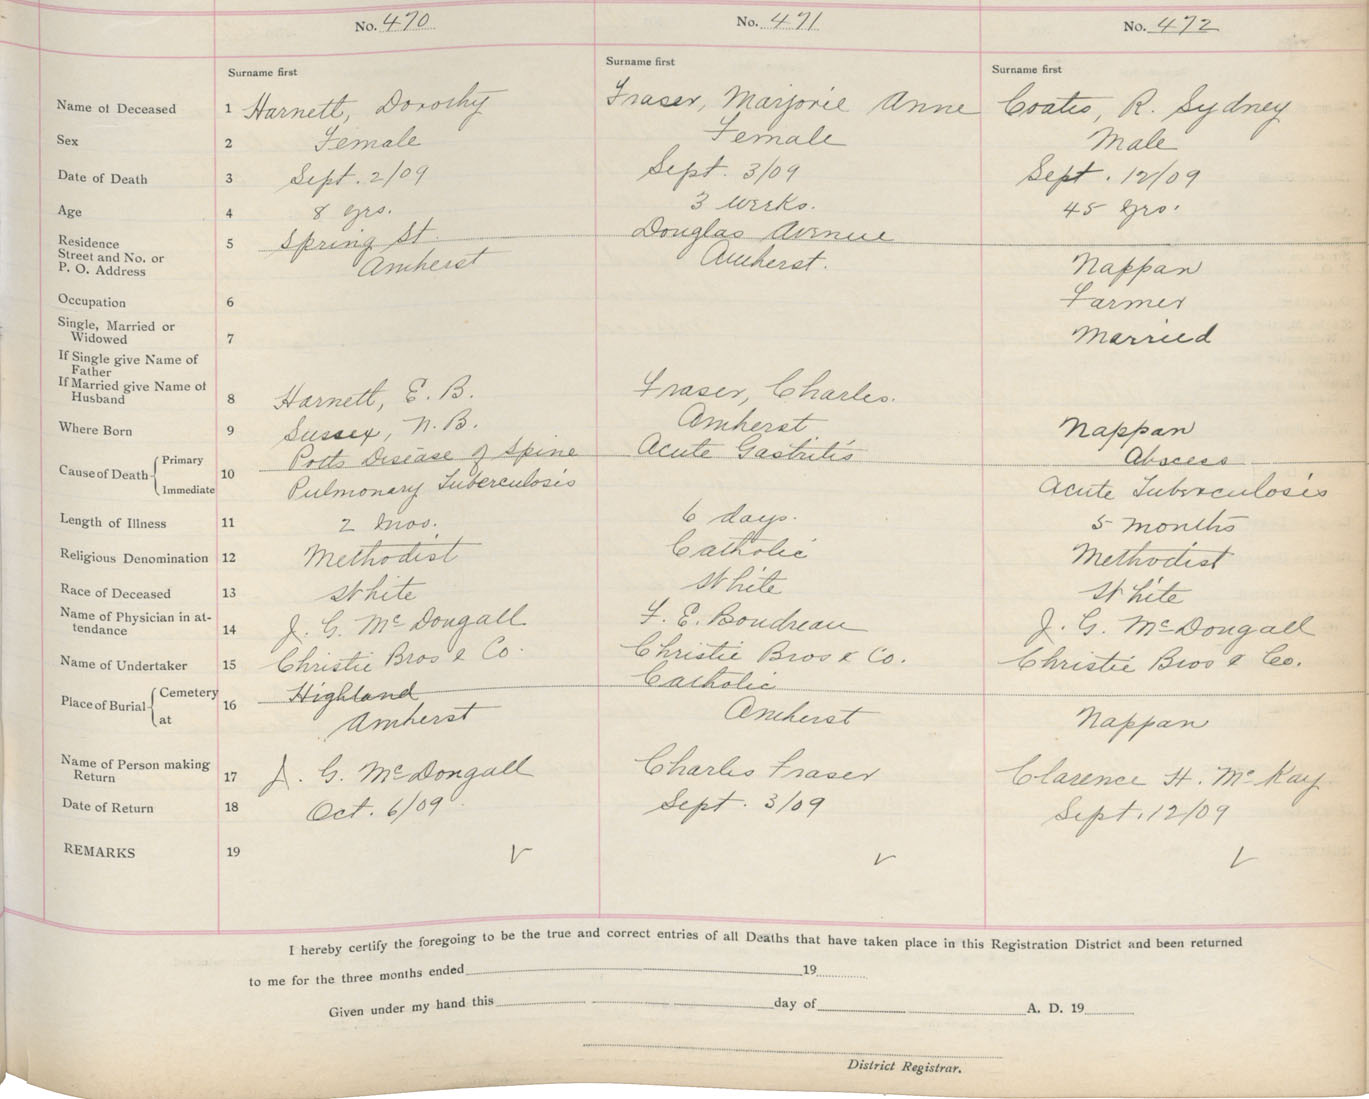 No. 470 No. 471 No. 472
Surname first Surname first Surname first
Name of Deceased 1 Harnett, Dorothy Fraser, Marjorie Anne Coates, R. Sydney
Sex 2 Female Female Male
Date of Death 3 Sept. 2/09 Sept. 3/09 Sept. 12/09
Age 4 8 yrs. 3 weeks. 45 yrs.
Residence 5 Spring St. Douglas Avenue
Street and No. or
P. O. Address Amherst Amherst. Nappan
Occupation 6 Farmer
Single, Married or
Widowed 7 Married
If Single give Name of
Father
If Married give Name of
Husband 8 Harnett, E. B. Fraser, Charles.
Where Born 9 Sussex, N. B. Amherst Nappan
Cause of Death Primary 10 Potts Disease of Spine Acute Gastritis Abscess
Immediate Pulmonary Tuberculosis Acute Tuberculosis
Length of Illness 11 2 mos. 6 days. 5 months
Religious Denomination 12 Methodist Catholic Methodist
Race of Deceased 13 White White White
Name of Physician in at-
tendance 14 J. G. McDougall F. E. Boudreau J. G. McDougall
Name of Undertaker 15 Christie Bros & Co. Christie Bros & Co. Christie Bros & Co.
Place of Burial Cemetery 16 Highland Catholic
at Amherst Amherst Nappan
Name of Person making
Return 17 J. G. McDougall Charles Fraser Clarence H. McKay
Date of Return 18 Oct. 6/09 Sept. 3/09 Sept. 12/09
REMARKS 19 ✓ ✓ ✓
I hereby certify the foregoing to be the true and correct entries of all Deaths that have taken place in this Registration District and been returned
to me for the three months ended 19
Given under my hand this day of A. D. 19
District Registrar.